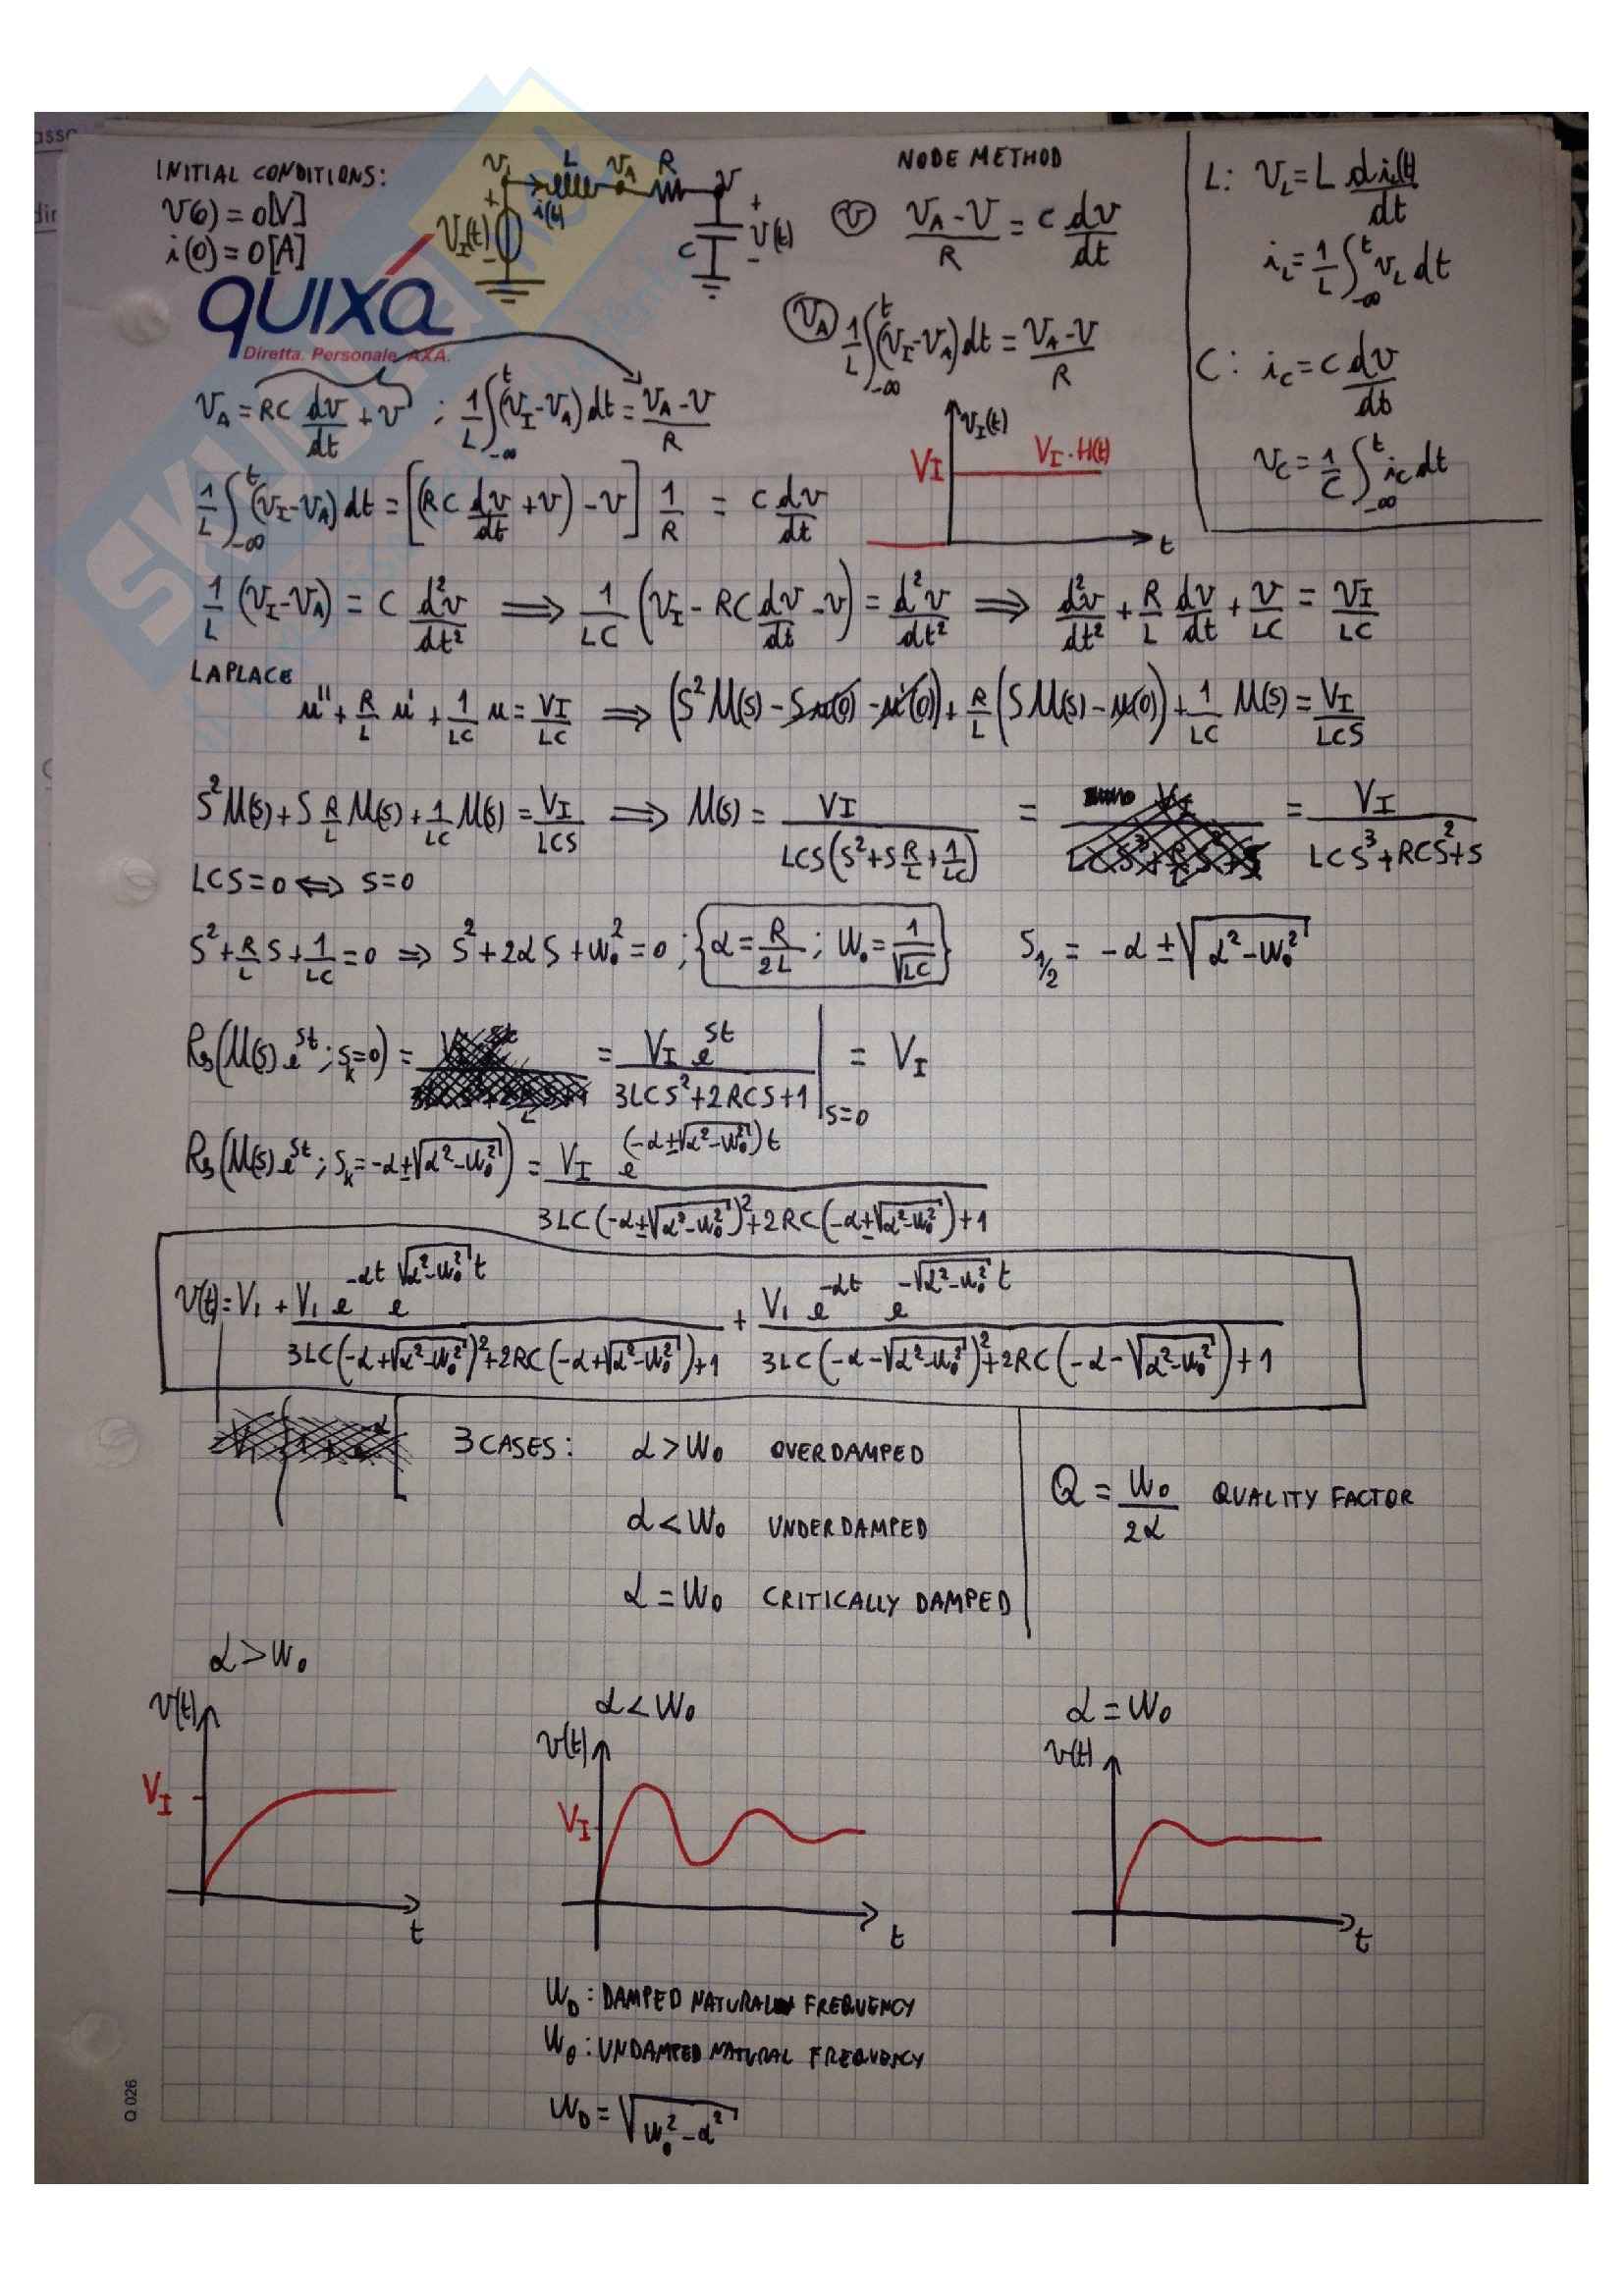 INITIAL CONDITIONS:
v(0) = 0[V]
i(0) = 0[A]
v_I L v_A R v
+ i(t) +
V_I(t) C v(t)
- -
NODE METHOD
(v) (v_A - v)/R = C dv/dt
(v_A) 1/L ∫_{-∞}^{t} (v_I - v_A) dt = (v_A - v)/R
L: v_L = L di_L(t)/dt
i_L = 1/L ∫_{-∞}^{t} v_L dt
C: i_C = C dv/dt
v_C = 1/C ∫_{-∞}^{t} i_C dt
QUIXA
Diretta. Personale. AXA.
v_A = RC dv/dt + v ; 1/L ∫_{-∞}^{t} (v_I - v_A) dt = (v_A - v)/R
v_I(t)
V_I V_I · H(t)
t
1/L ∫_{-∞}^{t} (v_I - v_A) dt = [(RC dv/dt + v) - v] 1/R = C dv/dt
1/L (v_I - v_A) = C d²v/dt² ⟹ 1/LC (v_I - RC dv/dt - v) = d²v/dt² ⟹ d²v/dt² + R/L dv/dt + v/LC = v_I/LC
LAPLACE
u'' + R/L u' + 1/LC u = V_I/LC ⟹ (S² U(s) - S u(0) - u'(0)) + R/L (S U(s) - u(0)) + 1/LC U(s) = V_I/LCS
S² U(s) + S R/L U(s) + 1/LC U(s) = V_I/LCS ⟹ U(s) = V_I/(LCS(S² + S R/L + 1/LC)) = = V_I/(LCS³ + RCS² + S)
LCS = 0 ⟺ S = 0
S² + R/L S + 1/LC = 0 ⟹ S² + 2αS + ω₀² = 0 ; {α = R/2L ; ω₀ = 1/√LC} S_{1/2} = -α ± √(α² - ω₀²)
Rs(U(s) e^{st} ; s_k = 0) = = V_I e^{st}/(3LCS² + 2RCS + 1) |_{S=0} = V_I
Rs(U(s) e^{st} ; s_k = -α ± √(α² - ω₀²)) = V_I e^{(-α ± √(α² - ω₀²)) t}/(3LC(-α ± √(α² - ω₀²))² + 2RC(-α ± √(α² - ω₀²)) + 1)
v(t) = V_I + V_I e^{-αt} e^{√(α² - ω₀²) t}/(3LC(-α + √(α² - ω₀²))² + 2RC(-α + √(α² - ω₀²)) + 1) + V_I e^{-αt} e^{-√(α² - ω₀²) t}/(3LC(-α - √(α² - ω₀²))² + 2RC(-α - √(α² - ω₀²)) + 1)
3 CASES: α > ω₀ OVERDAMPED
α < ω₀ UNDERDAMPED
α = ω₀ CRITICALLY DAMPED
Q = ω₀/2α QUALITY FACTOR
α > ω₀
v(t)
V_I
t
α < ω₀
v(t)
V_I
t
α = ω₀
v(t)
t
ω_D : DAMPED NATURAL FREQUENCY
ω₀ : UNDAMPED NATURAL FREQUENCY
ω_D = √(ω₀² - α²)
Q.026